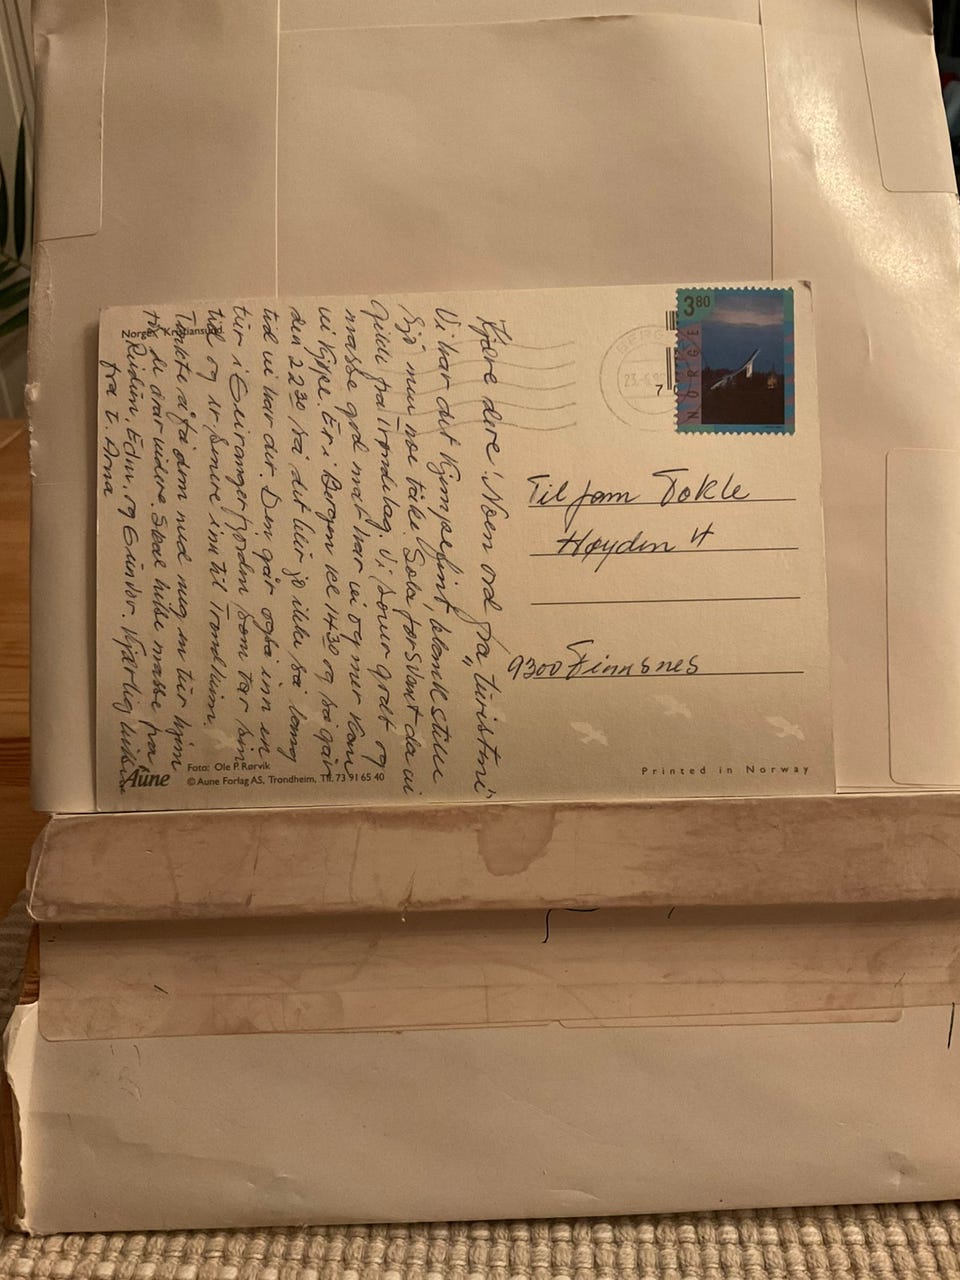 Norge, Kristiansund
Kjære dere! Noen ord fra "turistmi"
Vi har det kjempefint, blank stille
sjø men noe tåke. Sola forsvant da vi
gjekk fra Trøndelag. Vi sover godt og
masse god mat har vi og mer kan
vi kjøpe. Er i Bergen kl 14.30 og så går
den 22.30 så det blir jo ikke så lang
tid vi har der. Den går også inn en
tur i Geirangerfjorden som tar sin
tid og er senere inn til Trondheim.
Tenkte å få dem med meg en tur hjem
før de drar videre. Skal hilse masse fra
Reidun, Edm. og Gunvor. Kjærlig hilsen
fra T. Arna
Aune
Foto: Ole P. Rørvik
© Aune Forlag AS, Trondheim, Tlf. 73 91 65 40
3 80
NORGE
23.-6.
7
Til fam Tokle
Høyden 4
9300 Finnsnes
Printed in Norway